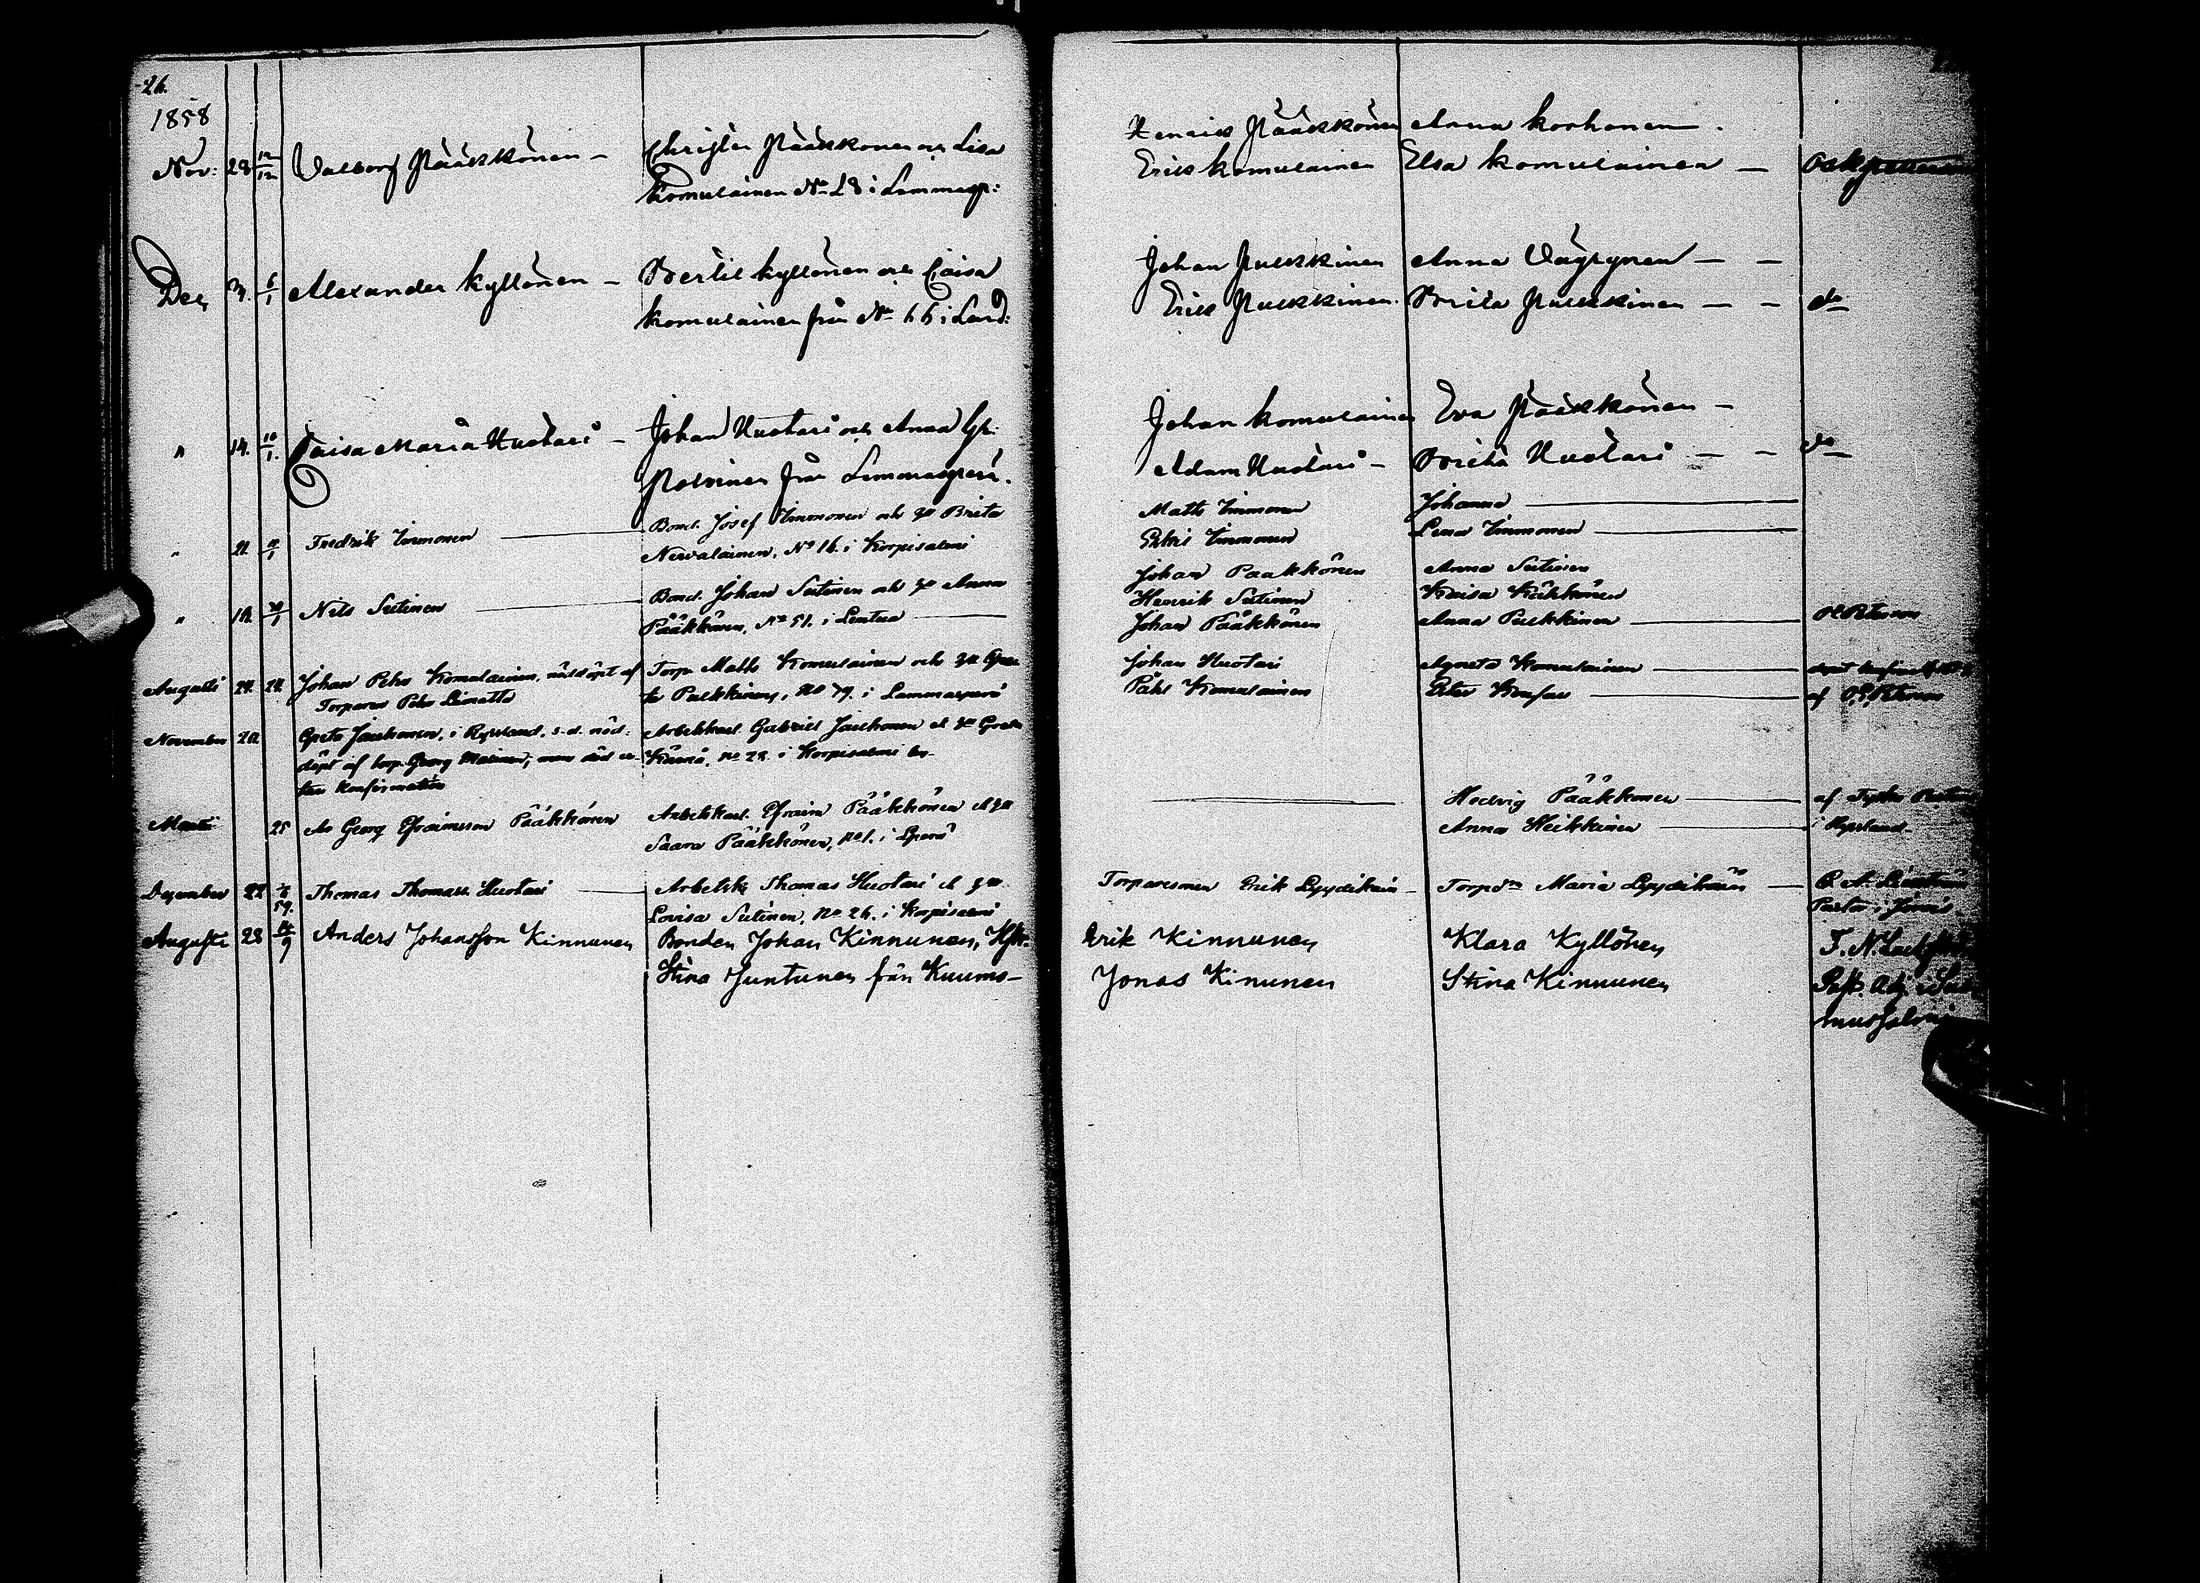 26.
1858
Nov: 28 12/12 Valborg Pääkkönen – Christer Pääkkönen och Lisa
Komulainen No 28 i Lammasp:
Dec 31. 6/1 Alexander Kyllönen – Bertil Kyllönen och Caisa
Komulainen från No 66 i Land:
" 14. 10/1. Caisa Maria Huotari – Johan Huotari och Anna Gr:
Polvinen från Lammasperä.
" 21. Fredrik Immonen Bond. Josef Immonen och h. Brita
Nevalainen, No 16. i Korpisalmi
" 18. Nils Sutinen Bond. Johan Sutinen och h. Anna
Pääkkönen, No 51. i Lentua
Augusti 24. 24. Johan Petter Komulainen, nöddöpt af Torp. Matts Komulainen och h. Gre-
Torparen Petter Leinatto ta Pulkkinen, No 79. i Lammasperä
November 20. Greta Jauhonen, i Ryssland, s.d. nöd- Arbetskarl. Gabriel Jauhonen o h. Greta
döpt af torp. Georg Moilanen, men död u- Kärnä, No 28. i Korpisalmi by
tan konfirmation
25 Ao Georg Efraimsson Pääkkönen Arbetskarl. Efraim Pääkkönen o h.
Saara Pääkkönen, No 1. i
December 22 59. Thomas Thomass. Huotari Arbetsk Thomas Huotari o h.
Lovisa Sutinen, No 26. i Korpisalmi
Augusti 28 Anders Johansson Kinnunen Bonden Johan Kinnunen, Hstr.
Stina Juntunen från Kuumo-
Henrick Pääkkönen Anna Korhonen.
Erick Komulainen Elsa Komulainen –
Johan Pulkkinen Anna Väyrynen – –
Erick Pulkkinen. Brita Pulkkinen – – do
Johan Komulainen Eva Pääkkönen –
Adam Huotari – Brita Huotari – – do
Matts Immonen Johanna
Petter Immonen Lena Immonen
Johan Pääkkönen Anna Sutinen
Henrik Sutinen Kaisa Kähkönen
Johan Pääkkönen Anna Pulkkinen
Johan Huotari Agneta Komulainen
Påhl Komulainen
Hedvig Pääkkönen
Anna Heikkinen i Ryssland
Torparesonen Erik Lyydikäin Torpdr Maria Lyydikäin
Erik Kinnunen Klara Kyllönen
Jonas Kinunen Stina Kinnunen